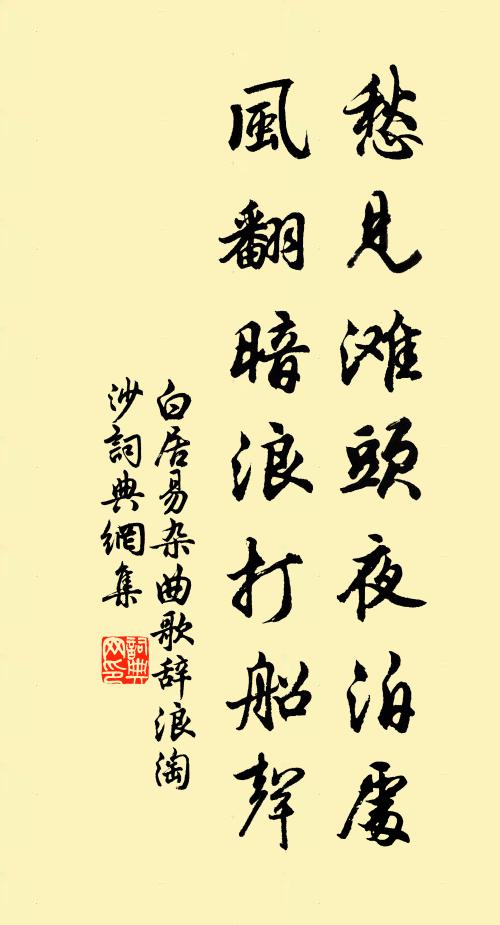 愁見滩頭夜泊處
風翻暗浪打船聲
白居易杂曲歌辞浪淘
沙詞典網集
詞典網印